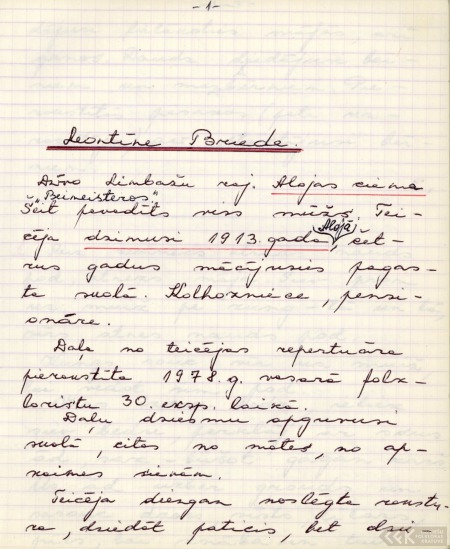 -1-
Leontīne Briede.
Dzīvo Limbažu raj. Alojas ciema
"Beimeisteros."
Šeit pavadīts viss mūžs. Tei-
Alojā
cēja dzimusi 1913. gada, čet-
rus gadus mācījusies pagas-
ta skolā. Kolhozniece, pensi-
onāre.
Daļa no teicējas repertuāra
pierakstīta 1978. g. vasarā folk-
loristu 30. eksp. laikā.
Daļu dziesmu apguvusi
skolā, citas no mātes, no ap-
kaimes sievām.
Teicēja diezgan noslēgta rakstu-
ra, dziedāt paticis, bet dzie-